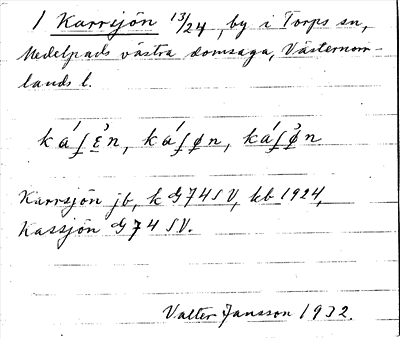 1 Karrsjön 13/24, by i Torps sn,
Medelpads västra domsaga, Västernorr-
lands l.
káʃɛ̀n, káʃøn, káʃø̀n
Karrsjön jb, k G74SV, kb 1924,
Kassjön G74 SV.
Valter Jansson 1932.